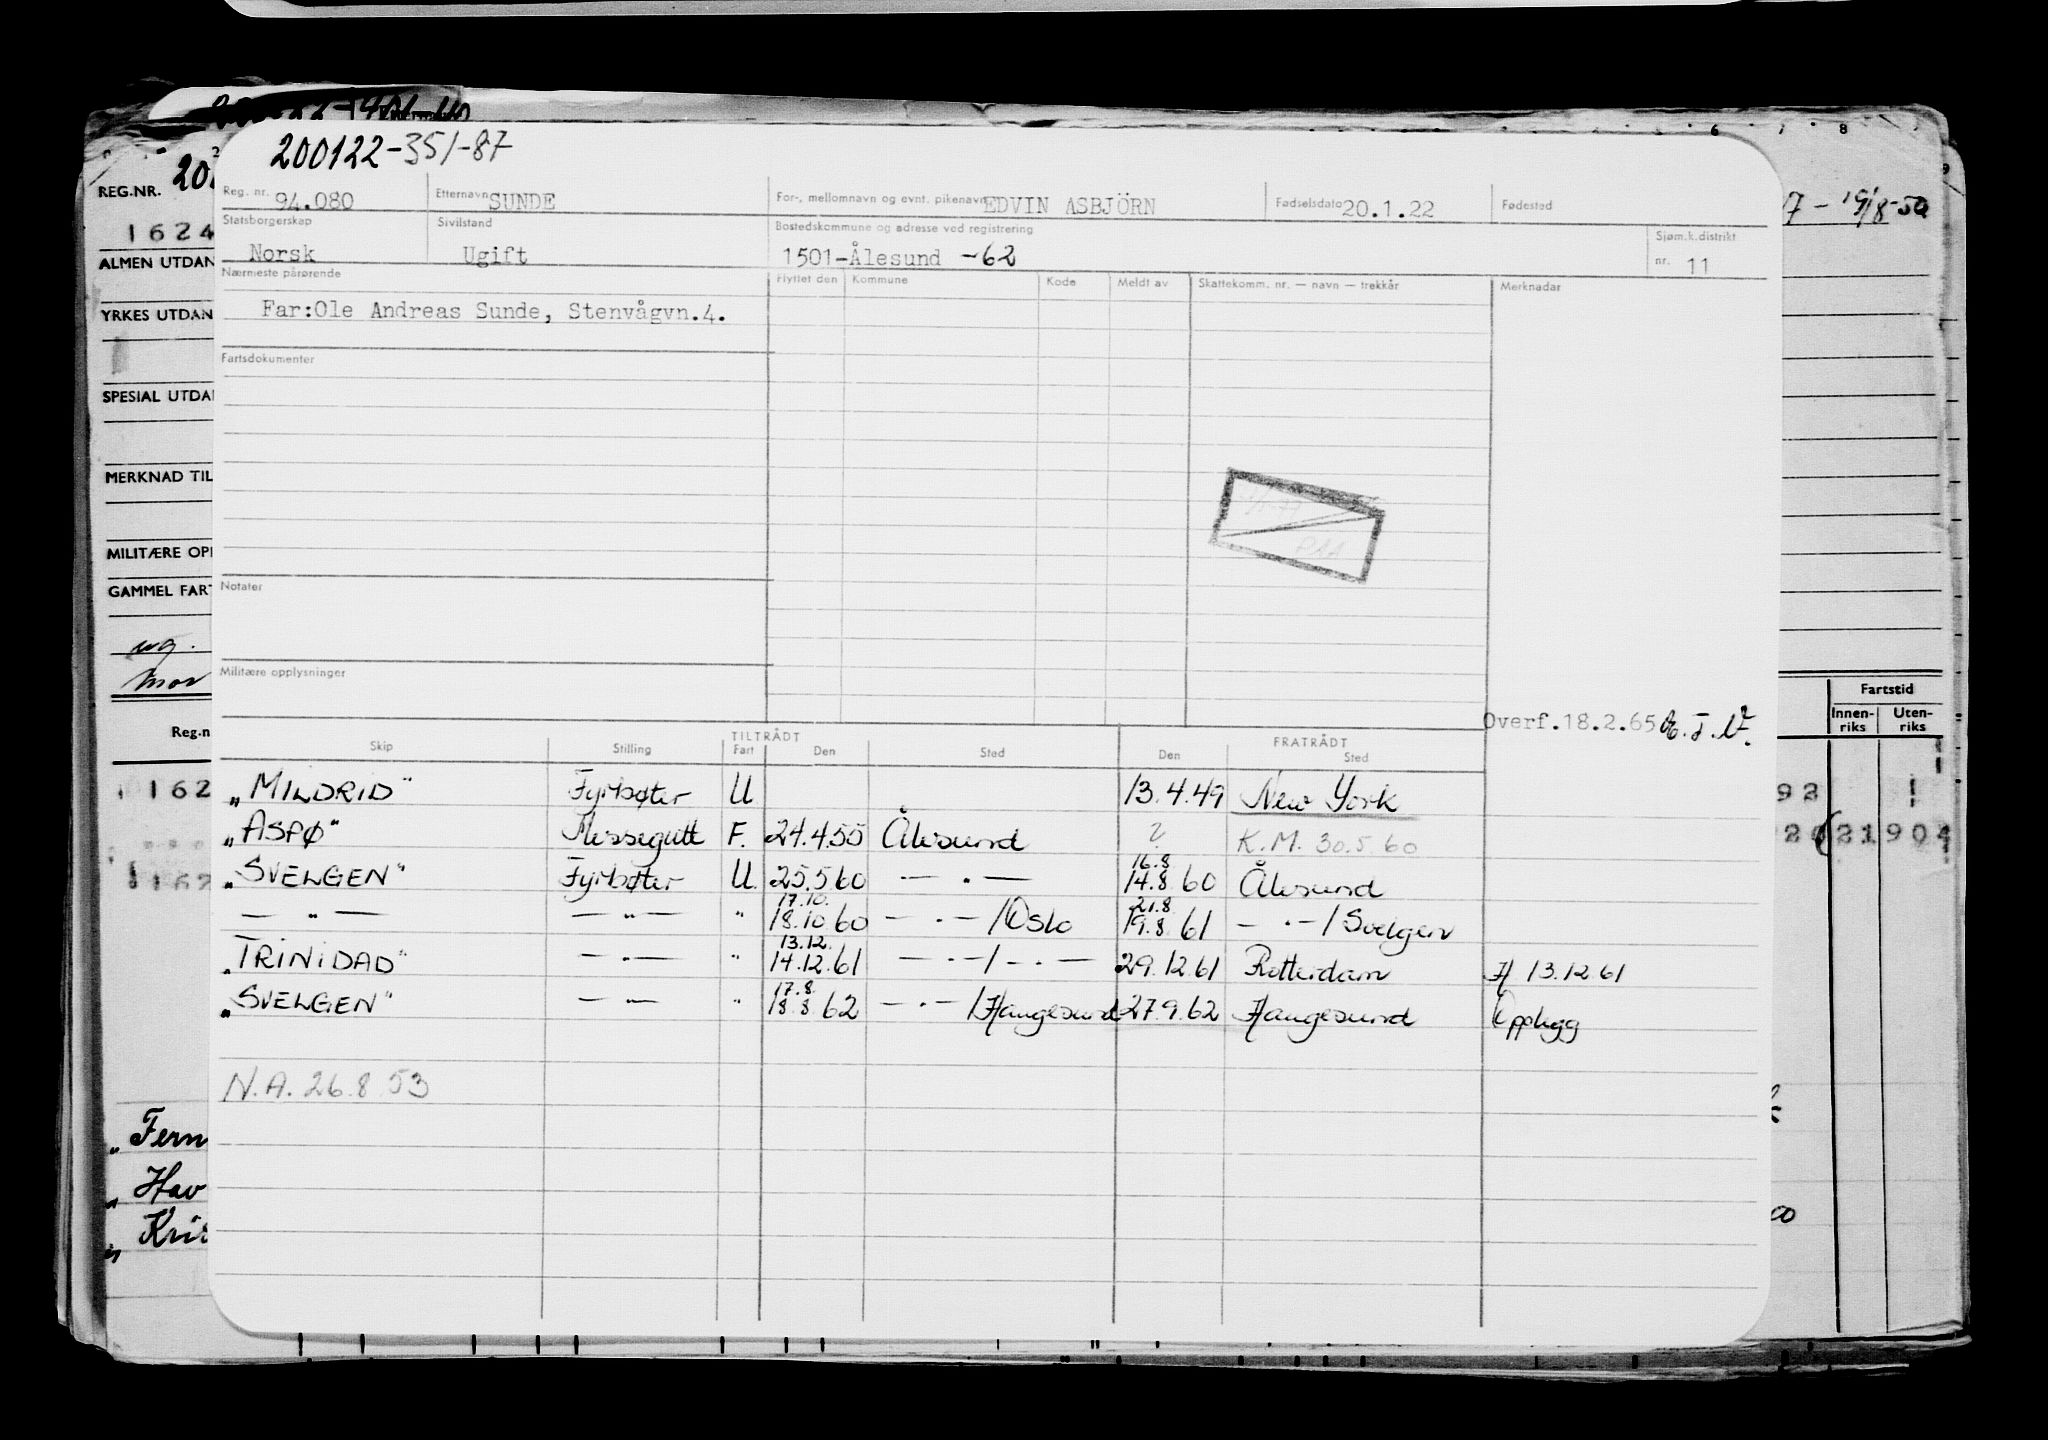 200122-351-87
REG.NR. 20
1624
ALMEN UTDAN
YRKES UTDAN
SPESIAL UTDA
MERKNAD TIL
MILITÆRE OP
GAMMEL FART
ug.
Mor
Reg.n
162
162
„Fern
„Hav
„Kri
Reg. nr. 94.080 Etternavn SUNDE For-, mellomnavn og evnt. pikenavn EDVIN ASBJÖRN Fødselsdato 20.1.22 Fødested
Statsborgerskap Sivilstand Bostedskommune og adresse ved registrering Sjøm.k.distrikt
Norsk Ugift 1501-Ålesund -62 nr. 11
Nærmeste pårørende Flyttet den Kommune Kode Meldt av Skattekomm. nr. — navn — trekkår Merknadar
Far:Ole Andreas Sunde, Stenvågvn.4.
Fartsdokumenter
Notater
Militære opplysninger
Overf.18.2.65
TILTRÅDT FRATRÅDT
Skip Stilling Fart Den Sted Den Sted
„MILDRID" Fyrbøter U 13.4.49 New York
„ASPØ" Messegutt F. 24.4.55 Ålesund ? K.M. 30.5.60
16.8
„SVELGEN" Fyrbøter U. 25.5.60 — . — 14.8.60 Ålesund
17.10. 21.8
— " — — " — " 18.10.60 — . — /Oslo 19.8.61 — . — / Svelgen
13.12.
„TRINIDAD" — " — " 14.12.61 — . — / — . — 29.12.61 Rotterdam H 13.12.61
17.8
„SVELGEN" — " — " 18.8.62 — . — / Haugesund 27.9.62 Haugesund Opplegg
N.A. 26.8.53
19/8-50
Fartstid
Innen-riks Uten-riks
92 1
21904